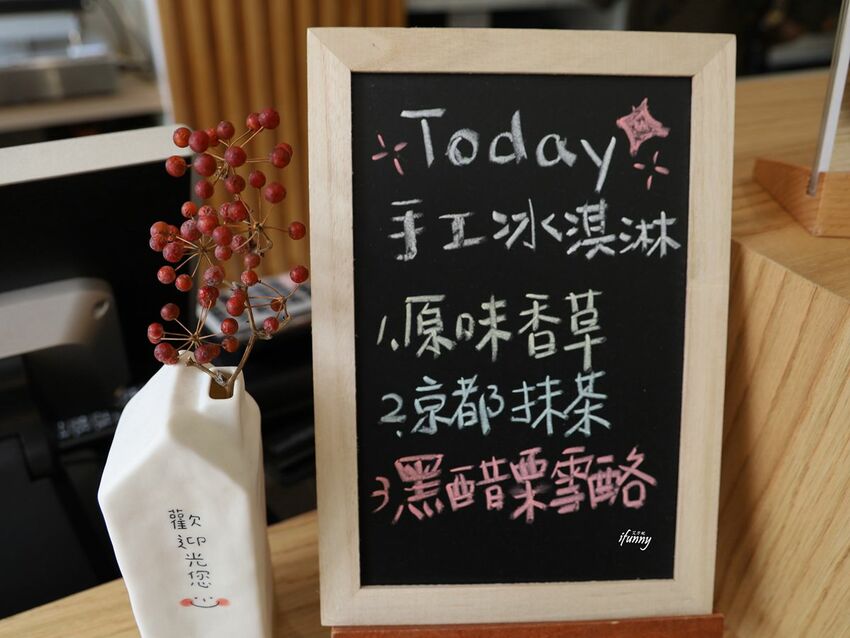 Today
手工冰淇淋
1.原味香草
2.京都抹茶
3黑醋栗雪酪
歡迎光您
ifunny